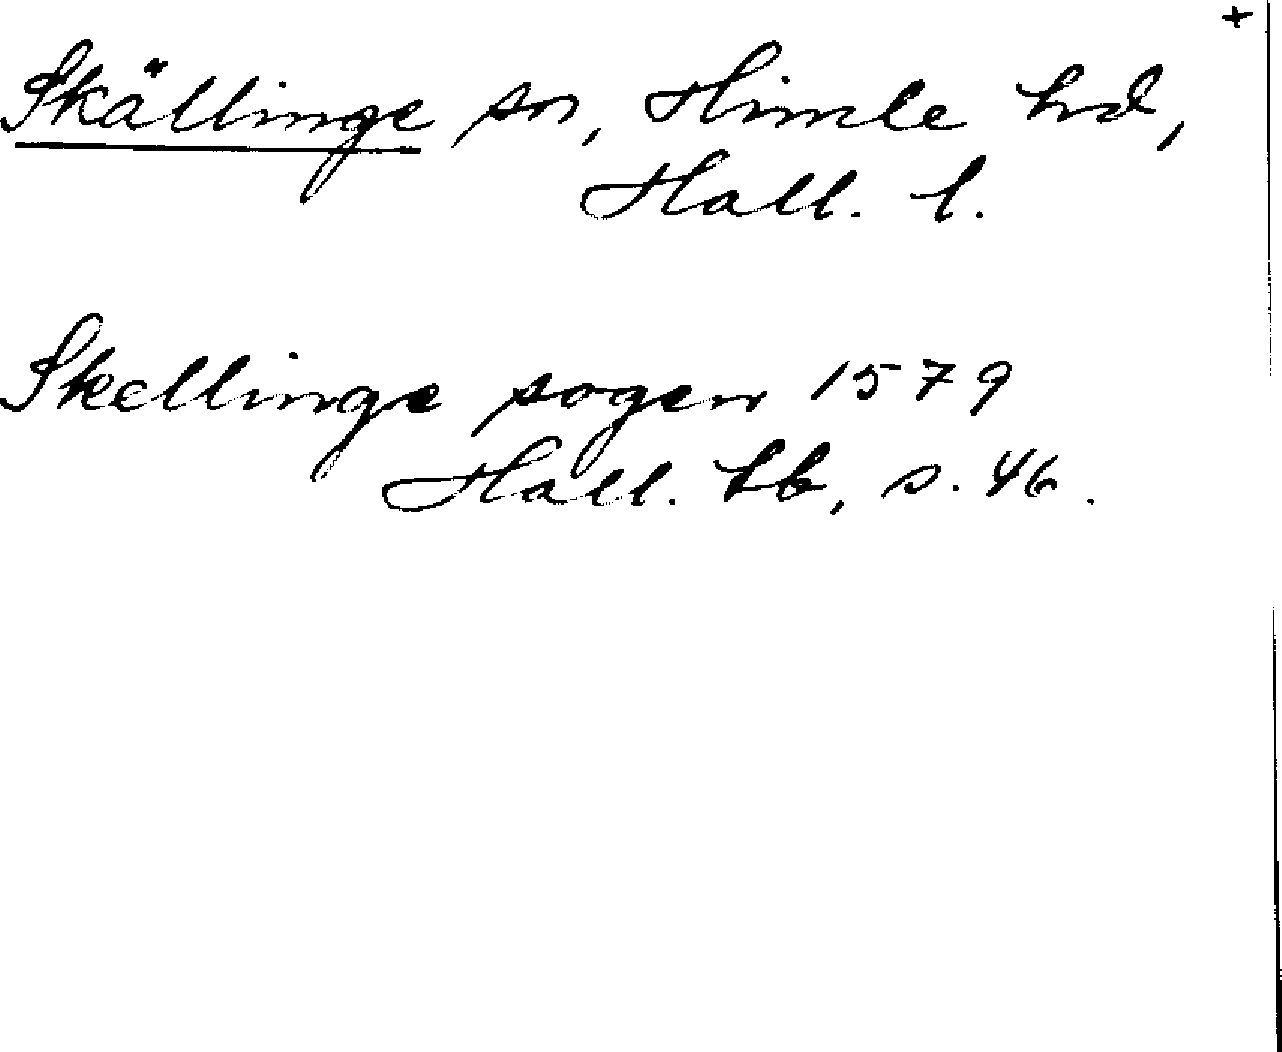 +
Skällinge sn, Himle hd,
Hall. l.
Skellinge sogen 1579
Hall. lb, s. 46.